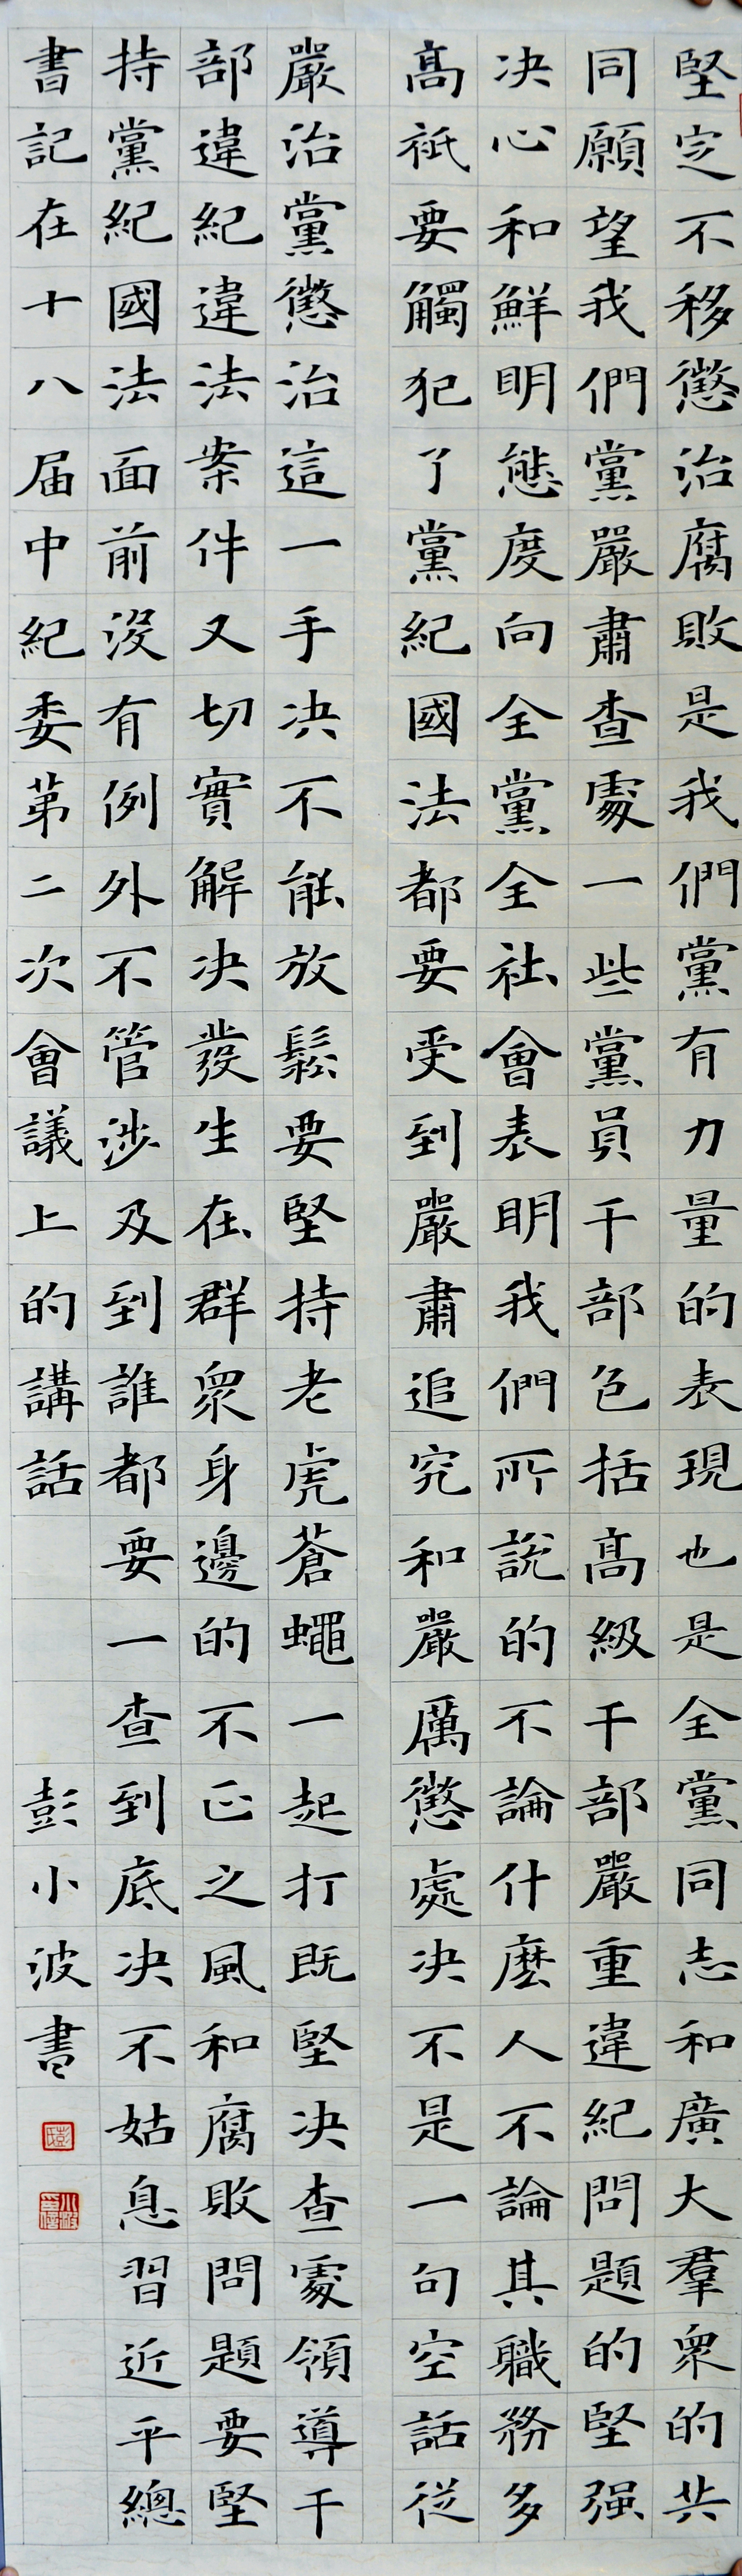 堅定不移懲治腐敗是我們黨有力量的表現也是全黨同志和廣大羣衆的共
同願望我們黨嚴肅查處一些黨員干部包括高級干部嚴重違紀問題的堅强
决心和鮮明態度向全黨全社會表明我們所說的不論什麽人不論其職務多
髙衹要觸犯了黨紀國法都要受到嚴肅追究和嚴厲懲處决不是一句空話從
嚴治黨懲治這一手决不能放鬆要堅持老虎蒼蠅一起打既堅决查處領導干
部違紀違法案件又切實解决發生在群衆身邊的不正之風和腐敗問題要堅
持黨紀國法面前没有例外不管涉及到誰都要一查到底决不姑息習近平總
書記在十八届中紀委第二次會議上的講話 彭小波書